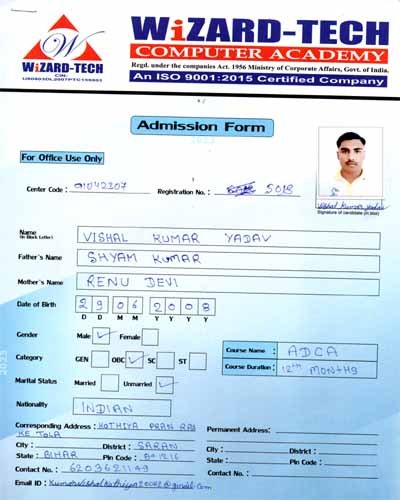 WiZARD-TECH
COMPUTER ACADEMY
Regd. under the companies Act. 1956 Ministry of Corporate Affairs, Govt. of India.
An ISO 9001:2015 Certified Company
W
WiZARD-TECH
CIN:
Admission Form
For Office Use Only
Center Code : 01042307 Registration No. : 5018
Vishal Kumar Yadav
Signature of candidate (in box)
Name VISHAL KUMAR YADAV
(in Block Letter)
Father's Name SHYAM KUMAR
Mother's Name RENU DEVI
Date of Birth 29 06 2008
D D M M Y Y Y Y
Gender Male Female
Category GEN OBC SC ST
Course Name : ADCA
Course Duration : 12th MONTHS
Marital Status Married Unmarried
Nationality INDIAN
Corresponding Address : KOTHIYA PRAN RAY Permanent Address:
KE TOLA
City : District : SARAN City : District :
State : BIHAR Pin Code : State : Pin Code :
Contact No. : 6203621149 Contact No. :
Email ID :
2023